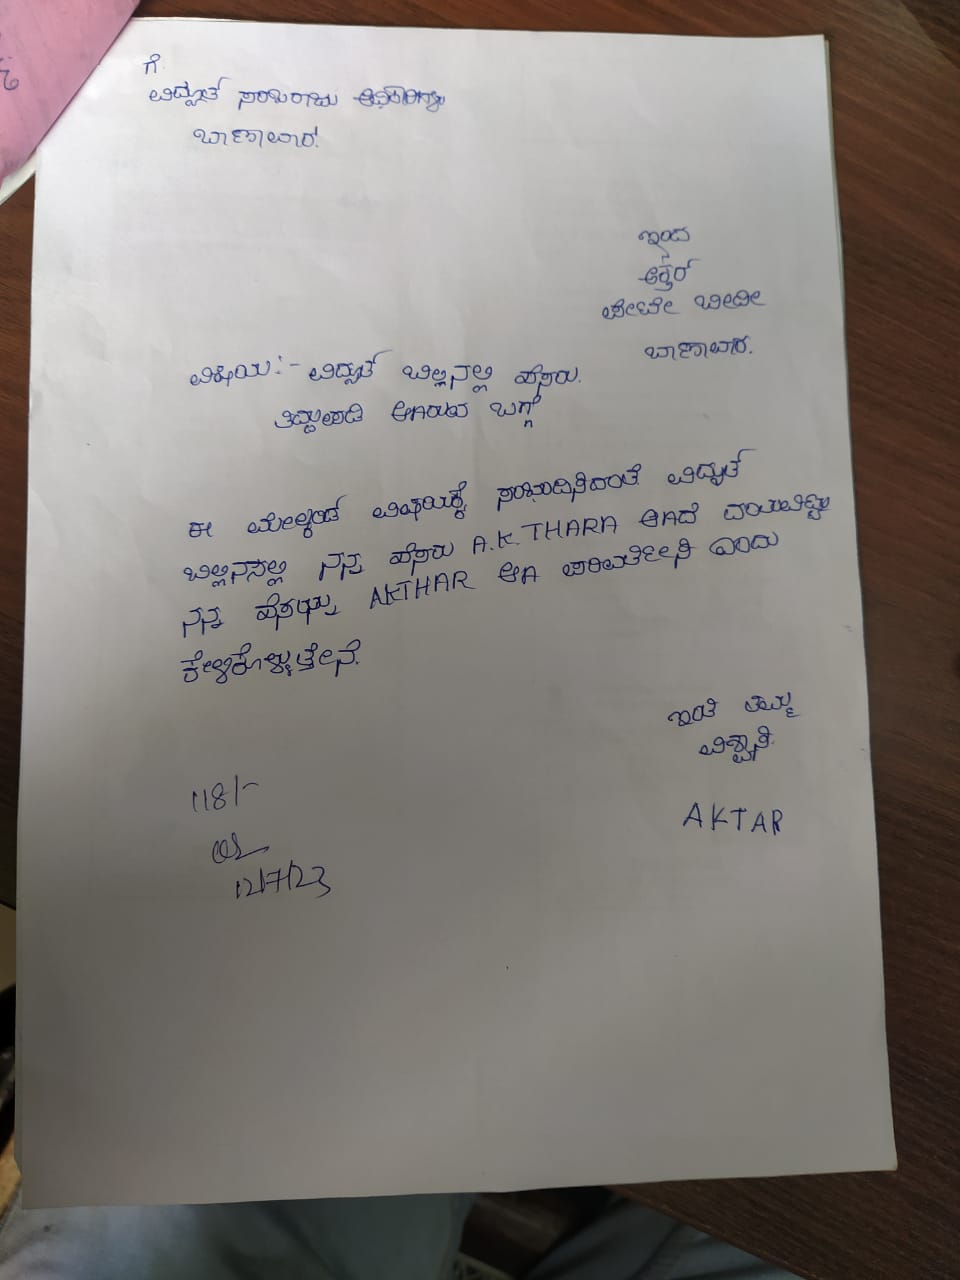 ಗೆ.
ವಿದ್ಯುತ್ ಸರಬರಾಜು ಅಧಿಕಾರಿಗಳು
ಬಾಣಾವಾರ.
ಇಂದ
ಅಕ್ತರ್
ಪೇಟೇ ಬೀದೀ
ಬಾಣಾವಾರ.
ವಿಷಯ:- ವಿದ್ಯುತ್ ಬಿಲ್ಲಿನಲ್ಲಿ ಹೆಸರು.
ತಿದ್ದುಪಡಿ ಆಗಿರುವ ಬಗ್ಗೆ
ಈ ಮೇಲ್ಕಂಡ ವಿಷಯಕ್ಕೆ ಸಂಬಂದಿಸಿದಂತೆ ವಿದ್ಯುತ್
ಬಿಲ್ಲಿನಲ್ಲಿ ನನ್ನ ಹೆಸರು A.K.THARA ಆಗಿದೆ ದಯವಿಟ್ಟು
ನನ್ನ ಹೆಸರನ್ನು AKTHAR ಆಗಿ ಪರಿವರ್ತೀಸಿ ಎಂದು
ಕೇಳಿಕೊಳ್ಳುತ್ತೇನೆ.
ಇಂತಿ ತಮ್ಮ
ವಿಶ್ವಾಸಿ.
118/-
AKTAR
12/7/23